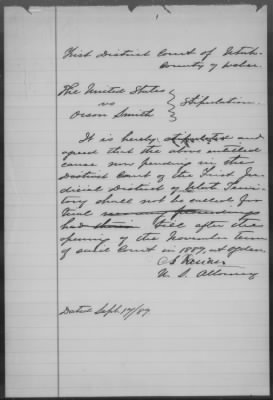 First District Court of Utah
County of Weber.
The United States
vs
Orson Smith
Stipulation.
It is hereby stipulated and
agreed that the above entitled
cause now pending in the
District Court of the First Ju-
dicial District of Utah Terri-
tory shall not be called for
trial
had till after the
opening of the November term
of said Court in 1889, at Ogden.
U. S. Attorney
Dated Sept. 17/89